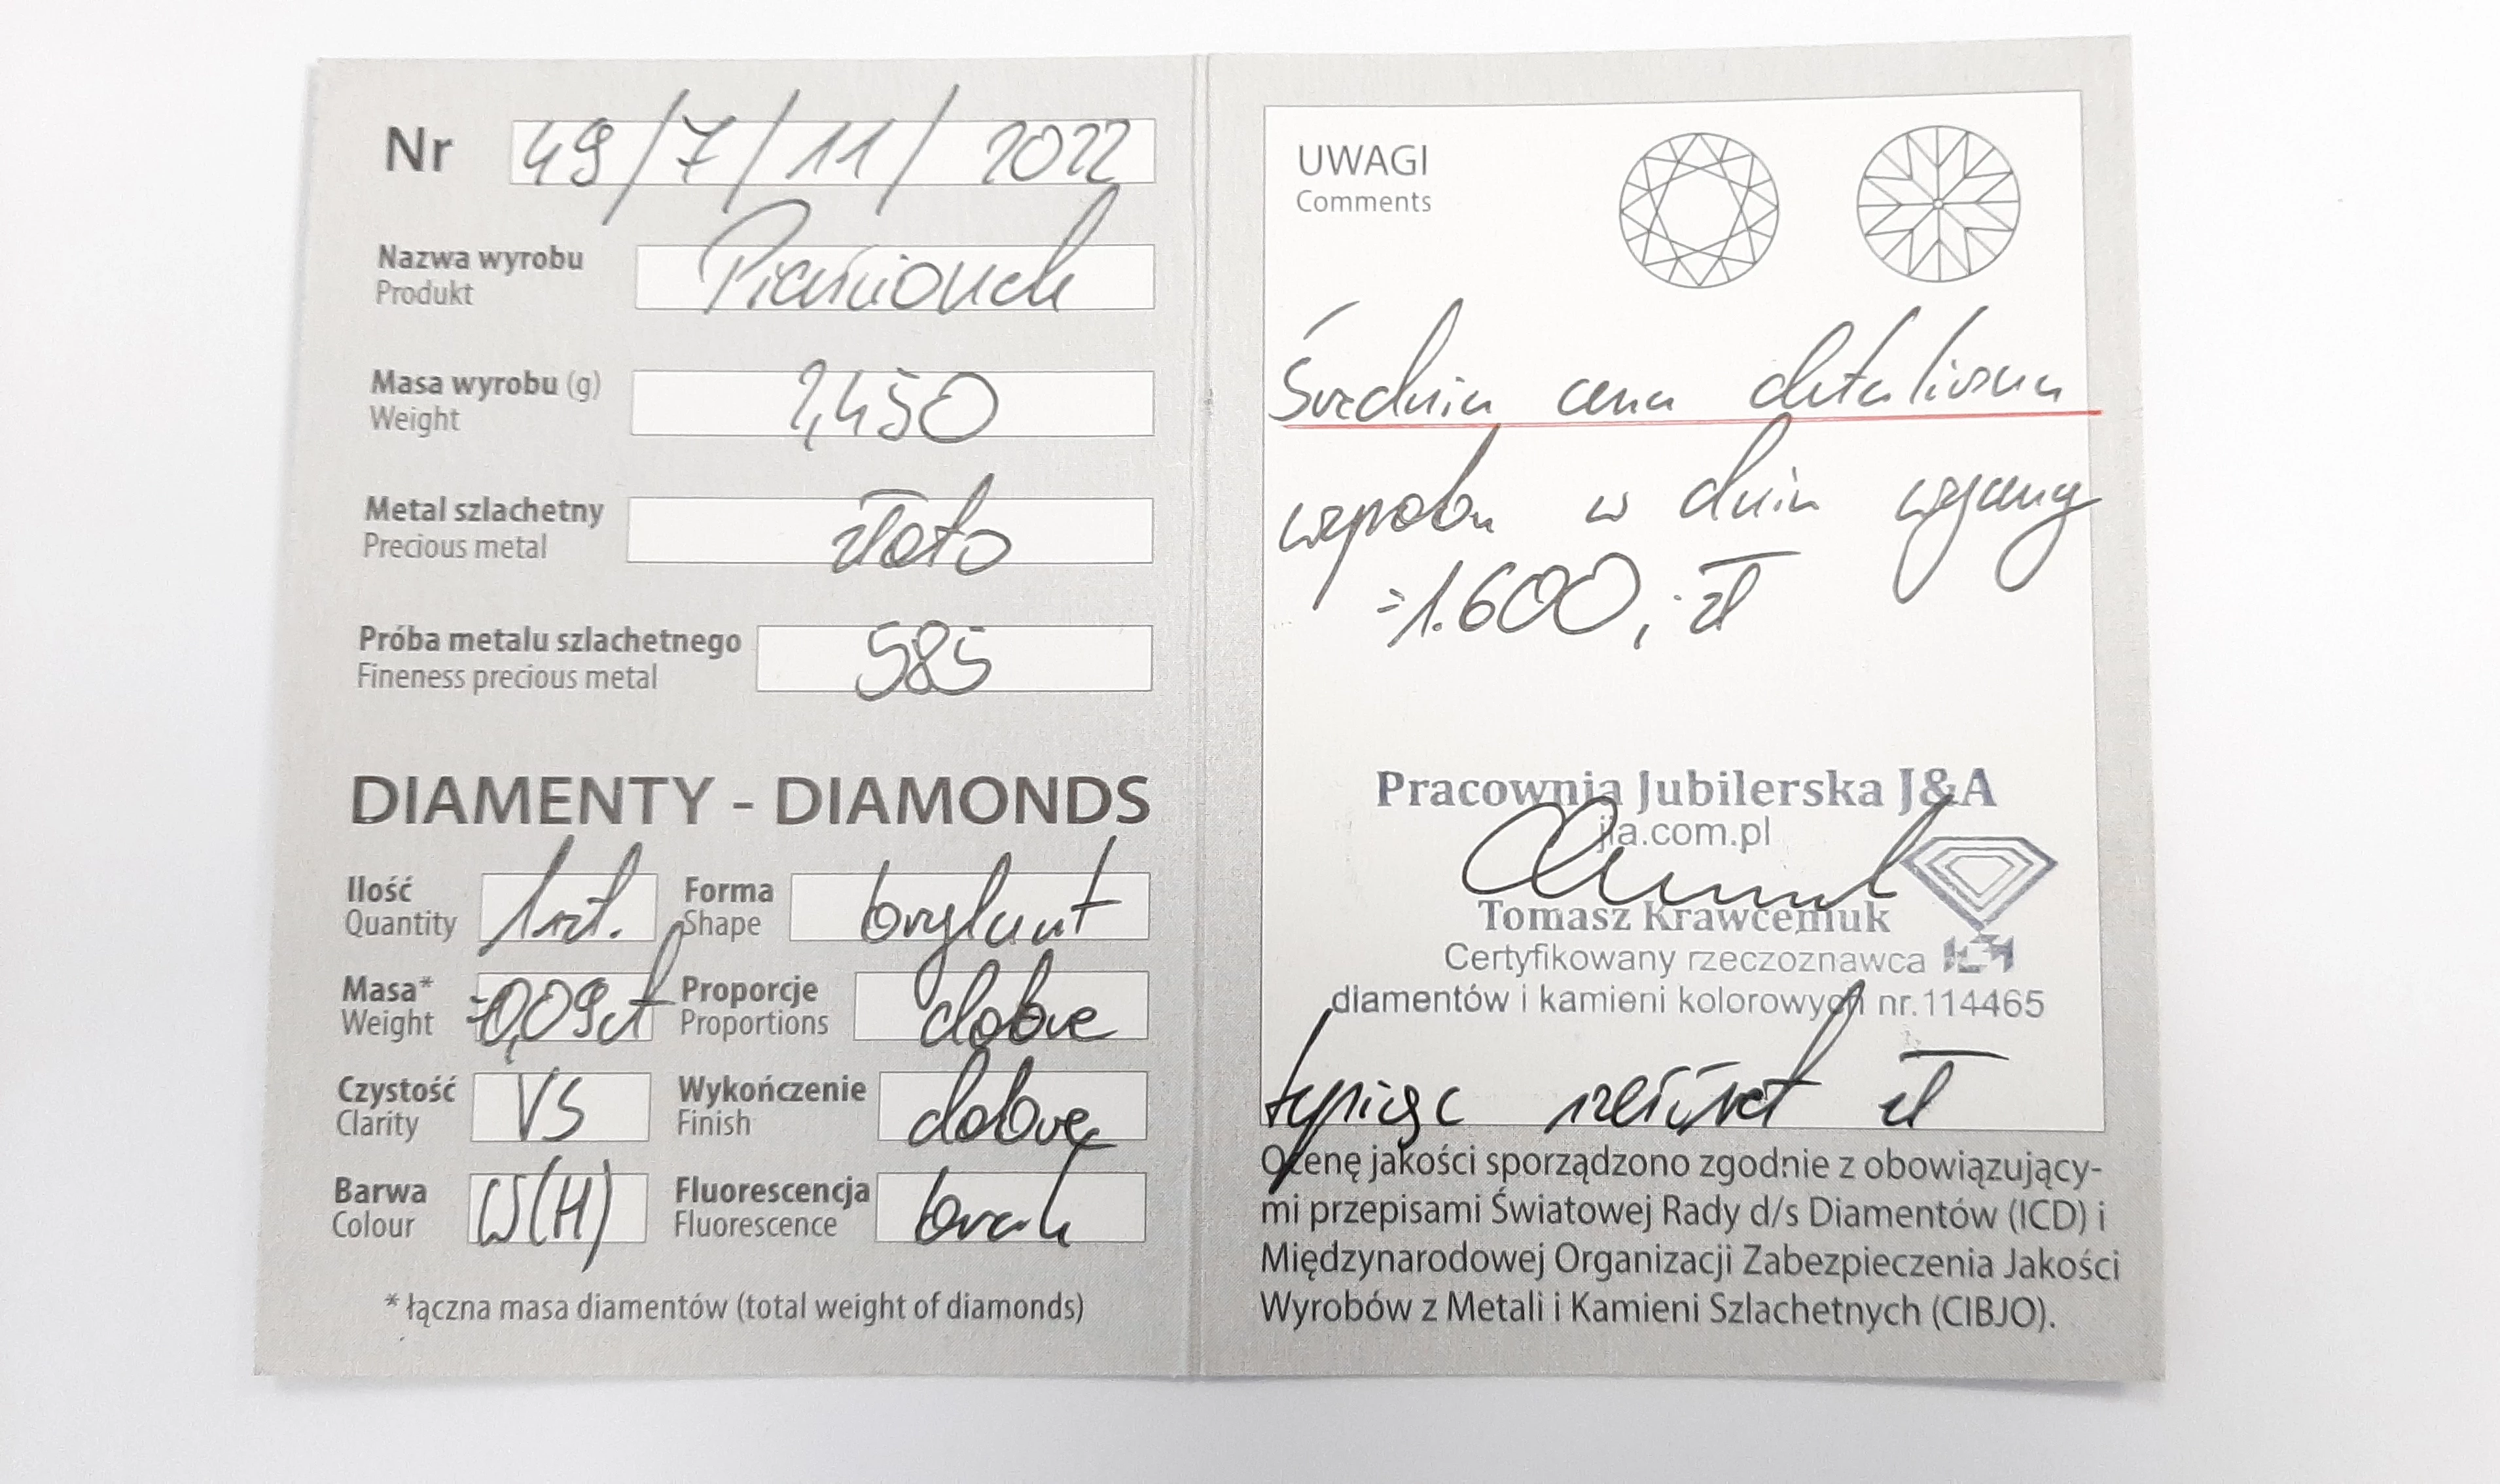 Nr 49/7/11/2022
Nazwa wyrobu Pierścionek
Produkt
Masa wyrobu (g) 2,450
Weight
Metal szlachetny złoto
Precious metal
Próba metalu szlachetnego 585
Fineness precious metal
DIAMENTY - DIAMONDS
Ilość 1szt. Forma brylant
Quantity Shape
Masa* =0,09ct Proporcje dobre
Weight Proportions
Czystość VS Wykończenie dobre
Clarity Finish
Barwa W(H) Fluorescencja brak
Colour Fluorescence
* łączna masa diamentów (total weight of diamonds)
UWAGI
Comments
Średnia cena detaliczna
wyrobu w dniu wyceny
=1.600,-zł
Pracownia Jubilerska J&A
jia.com.pl
Tomasz Krawceniuk
Certyfikowany rzeczoznawca
diamentów i kamieni kolorowych nr.114465
tysiąc sześćset zł
Ocenę jakości sporządzono zgodnie z obowiązujący-
mi przepisami Światowej Rady d/s Diamentów (ICD) i
Międzynarodowej Organizacji Zabezpieczenia Jakości
Wyrobów z Metali i Kamieni Szlachetnych (CIBJO).